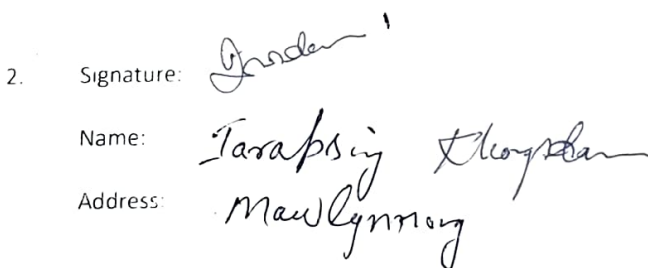 2. Signature:
Name: Tarapsing Khongsdam
Address: Mawlynnong